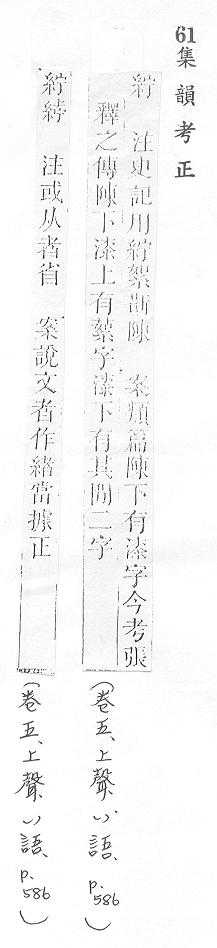 61集韻考正
紵 注史記用紵絮斮陳 案類篇陳下有漆字今考張
釋之傳陳下漆上有蔡字漆下有其閒二字
(卷五、上聲、八語、p.586)
紵䋡 注或从者省 案說文者作緒當據正
(卷五、上聲、八語、p.586)